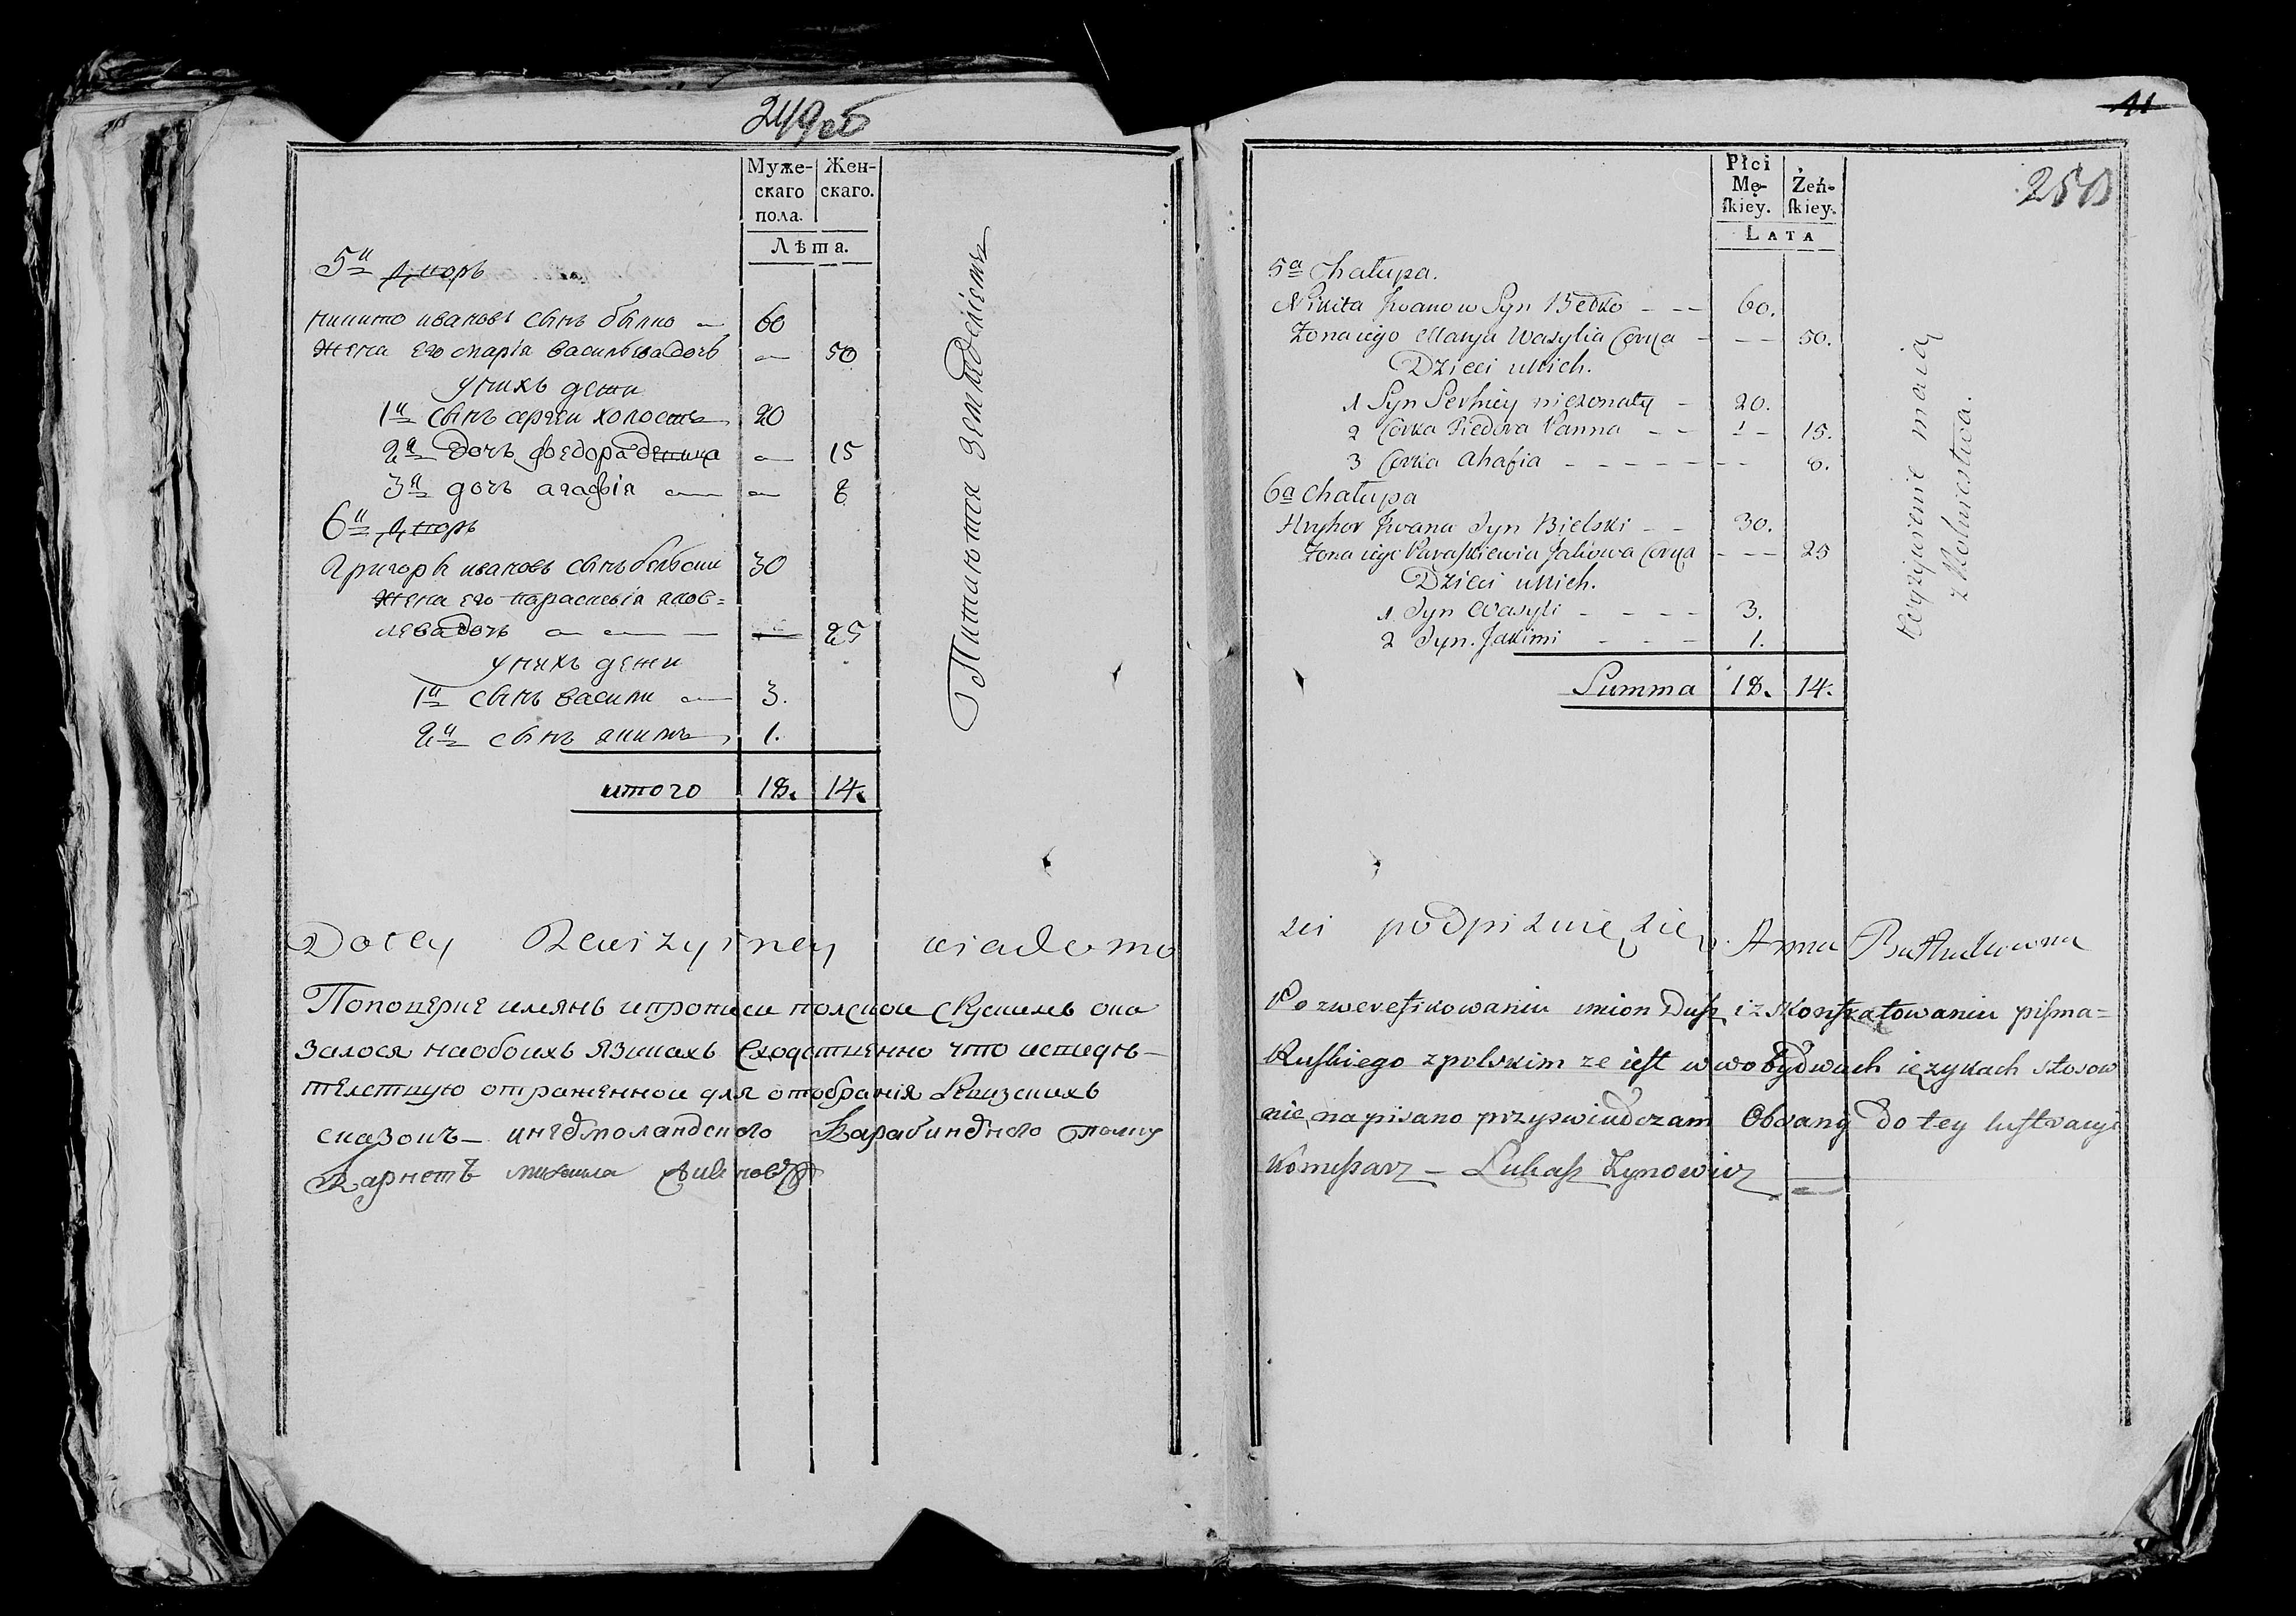 249об
Муже-
скаго
пола.
Жен-
скаго.
Лѣта.
5й дворъ
никита ивановъ сынъ белко — 60
жена его марія васильева дочь — 50
у нихъ дети
1й сынъ сергеи холостъ 20
2я дочь федора девица — 15
3я дочь агафія — — 8
6й дворъ
Григори ивановъ сынъ бельски 30
жена его параскевія яков=
лева дочь — — — 25
у нихъ дети
1й сынъ васили — 3.
2й сынъ яким 1.
итого 18. 14.
Питаются земледелiемъ
Do tey Rewizyiney wiadomo
По поверке имянъ и прописи полской с Рускимъ ока
залося на обоихъ языкахъ сходственно что и свидѣ—
телствую отряженнои для отобранія Ревизскихъ
сказокъ — ингермоландского Карабинерного полку
Карнетъ михаила
41
250
Płci
Mę-
skiey.
Żeń-
skiey.
LATA
5a Chałupa.
Nikita Iwanow Syn Bełko - - - 60.
Zona iego Marya Wasylia Corka - - - 50.
Dzieci u Nich.
1 Syn Serhiey niezonaty - 20.
2 Corka Fiedora Panna - - - - 15.
3 Corka Ahafia - - - - - - - 8.
6a Chałupa
Hryhor Iwana Syn Bielski - - 30.
Zona iego Paraskiewia Jakowa Corka - - - 25
Dzieci u Nich.
1 Syn Wasyli - - - - 3.
2 Syn. Jakimi - - - 1.
Summa 18. 14.
wyzywienie maią
z Rolnictwa.
sci podpisuię się. Anna
Po zwerefikowaniu imion Dusz i zskonfratowaniu pisma=
Ruskiego z polskim ze iest w wobydwuch ięzykach stosow
nie napisano przyswiadczam Obrany do tey lustracyi
Komisarz — Łukasz Zynowicz